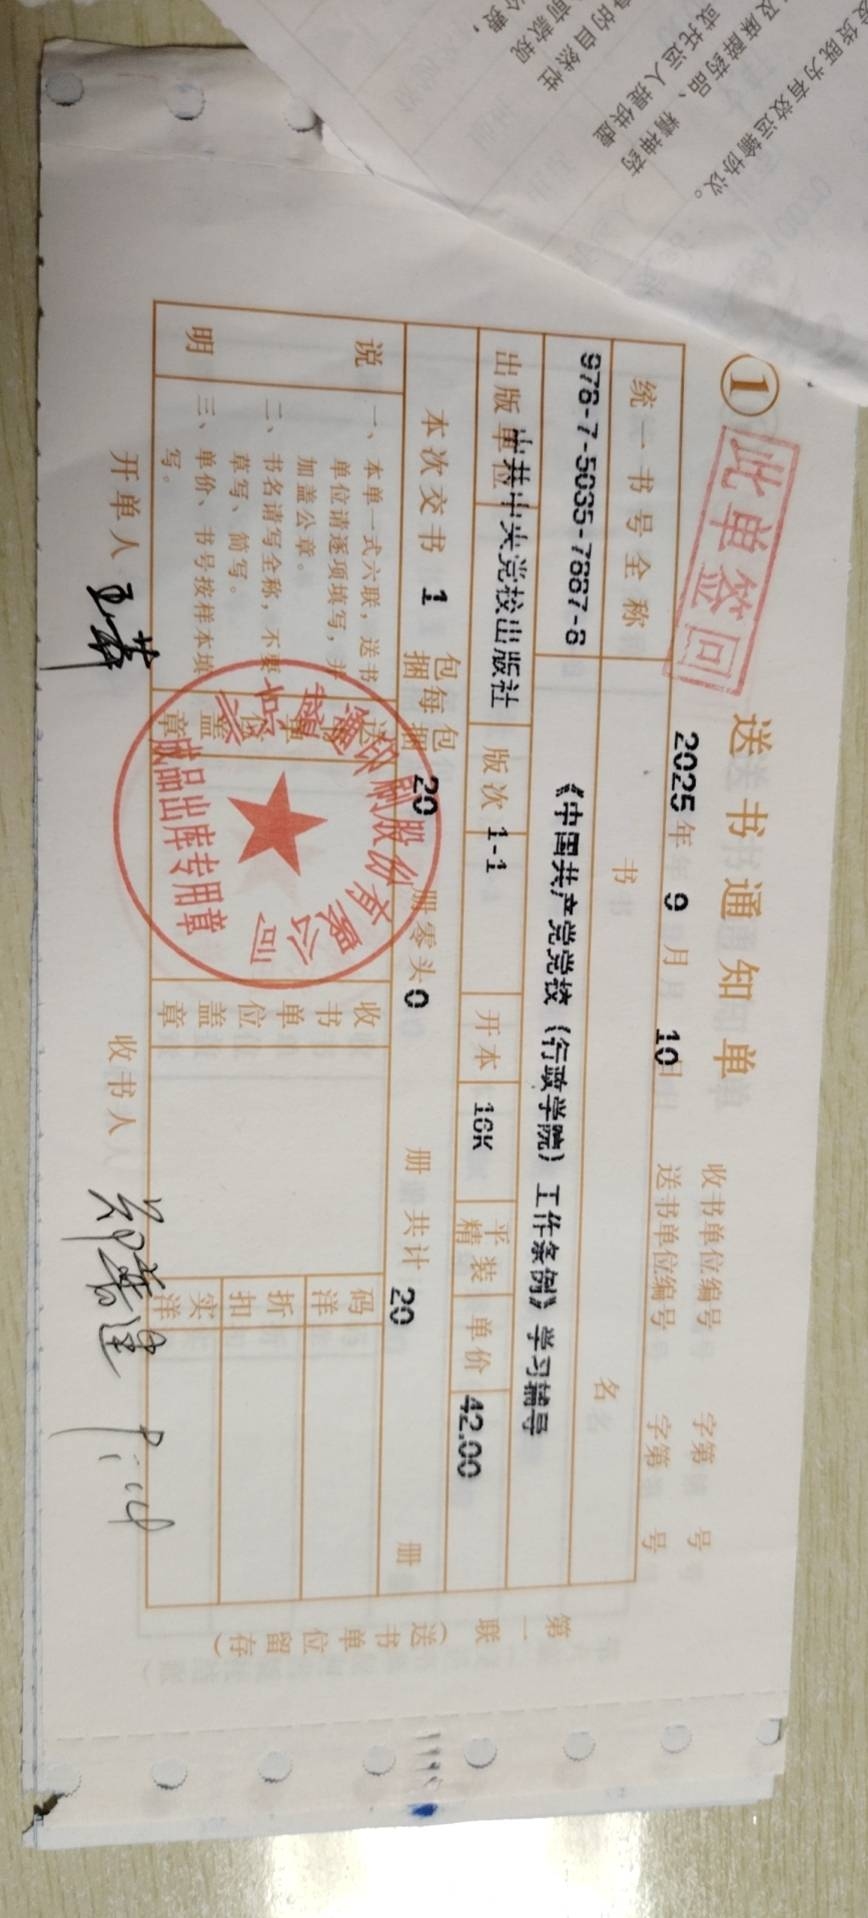 ①
此单签回
送书通知单
2025年9月10日
收书单位编号 字第 号
送书单位编号 字第 号
统一书号全称 书名
978-7-5035-7887-8 《中国共产党党校（行政学院）工作条例》学习辅导
出版单位 中共中央党校出版社 版次 1-1 开本 16K 平精装 单价 42.00
本次交书 1 包捆 每包捆 20 册零头 0 册 共计 20 册
说明
一、本单一式六联，送书
单位请逐项填写，并
加盖公章。
二、书名请写全称，不要
草写、简写。
三、单价、书号按样本填
写。
送书单位盖章
印刷股份有限公司
成品出库专用章
收书单位盖章
码洋
折扣
实洋
开单人 收书人
第一联（送书单位留存）
及货既为有效运输协议。
及麻醉药品、精神药
或托运人提供虚
的自然性